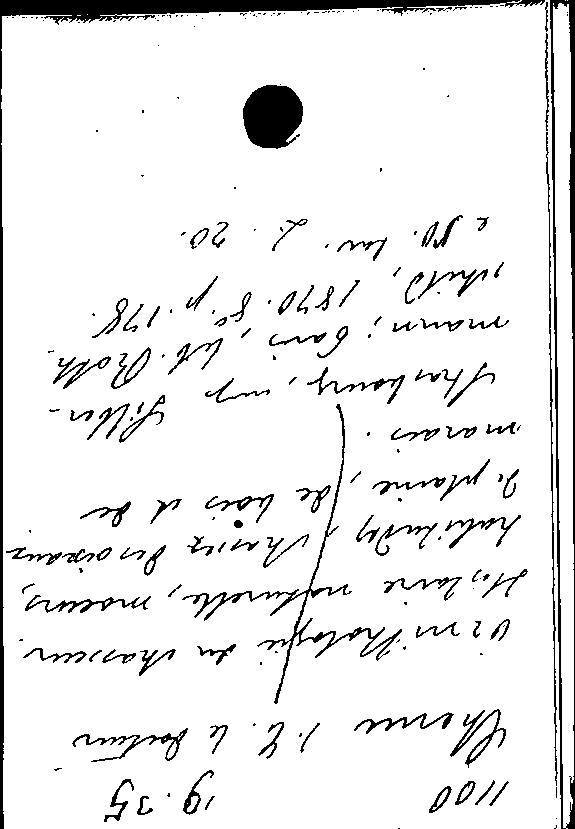 1100 19.35
Chenu J. C. le Docteur
Ornithologie du chasseur.
Histoire naturelle, moeurs,
habitudes, chasse des oiseaux
de plaine, de bois et de
marais.
Strasbourg, imp. Silber-
mann; Paris, lib. Roth-
schild, 1870. 8° p. 178.
e 50. tav. L. 20.